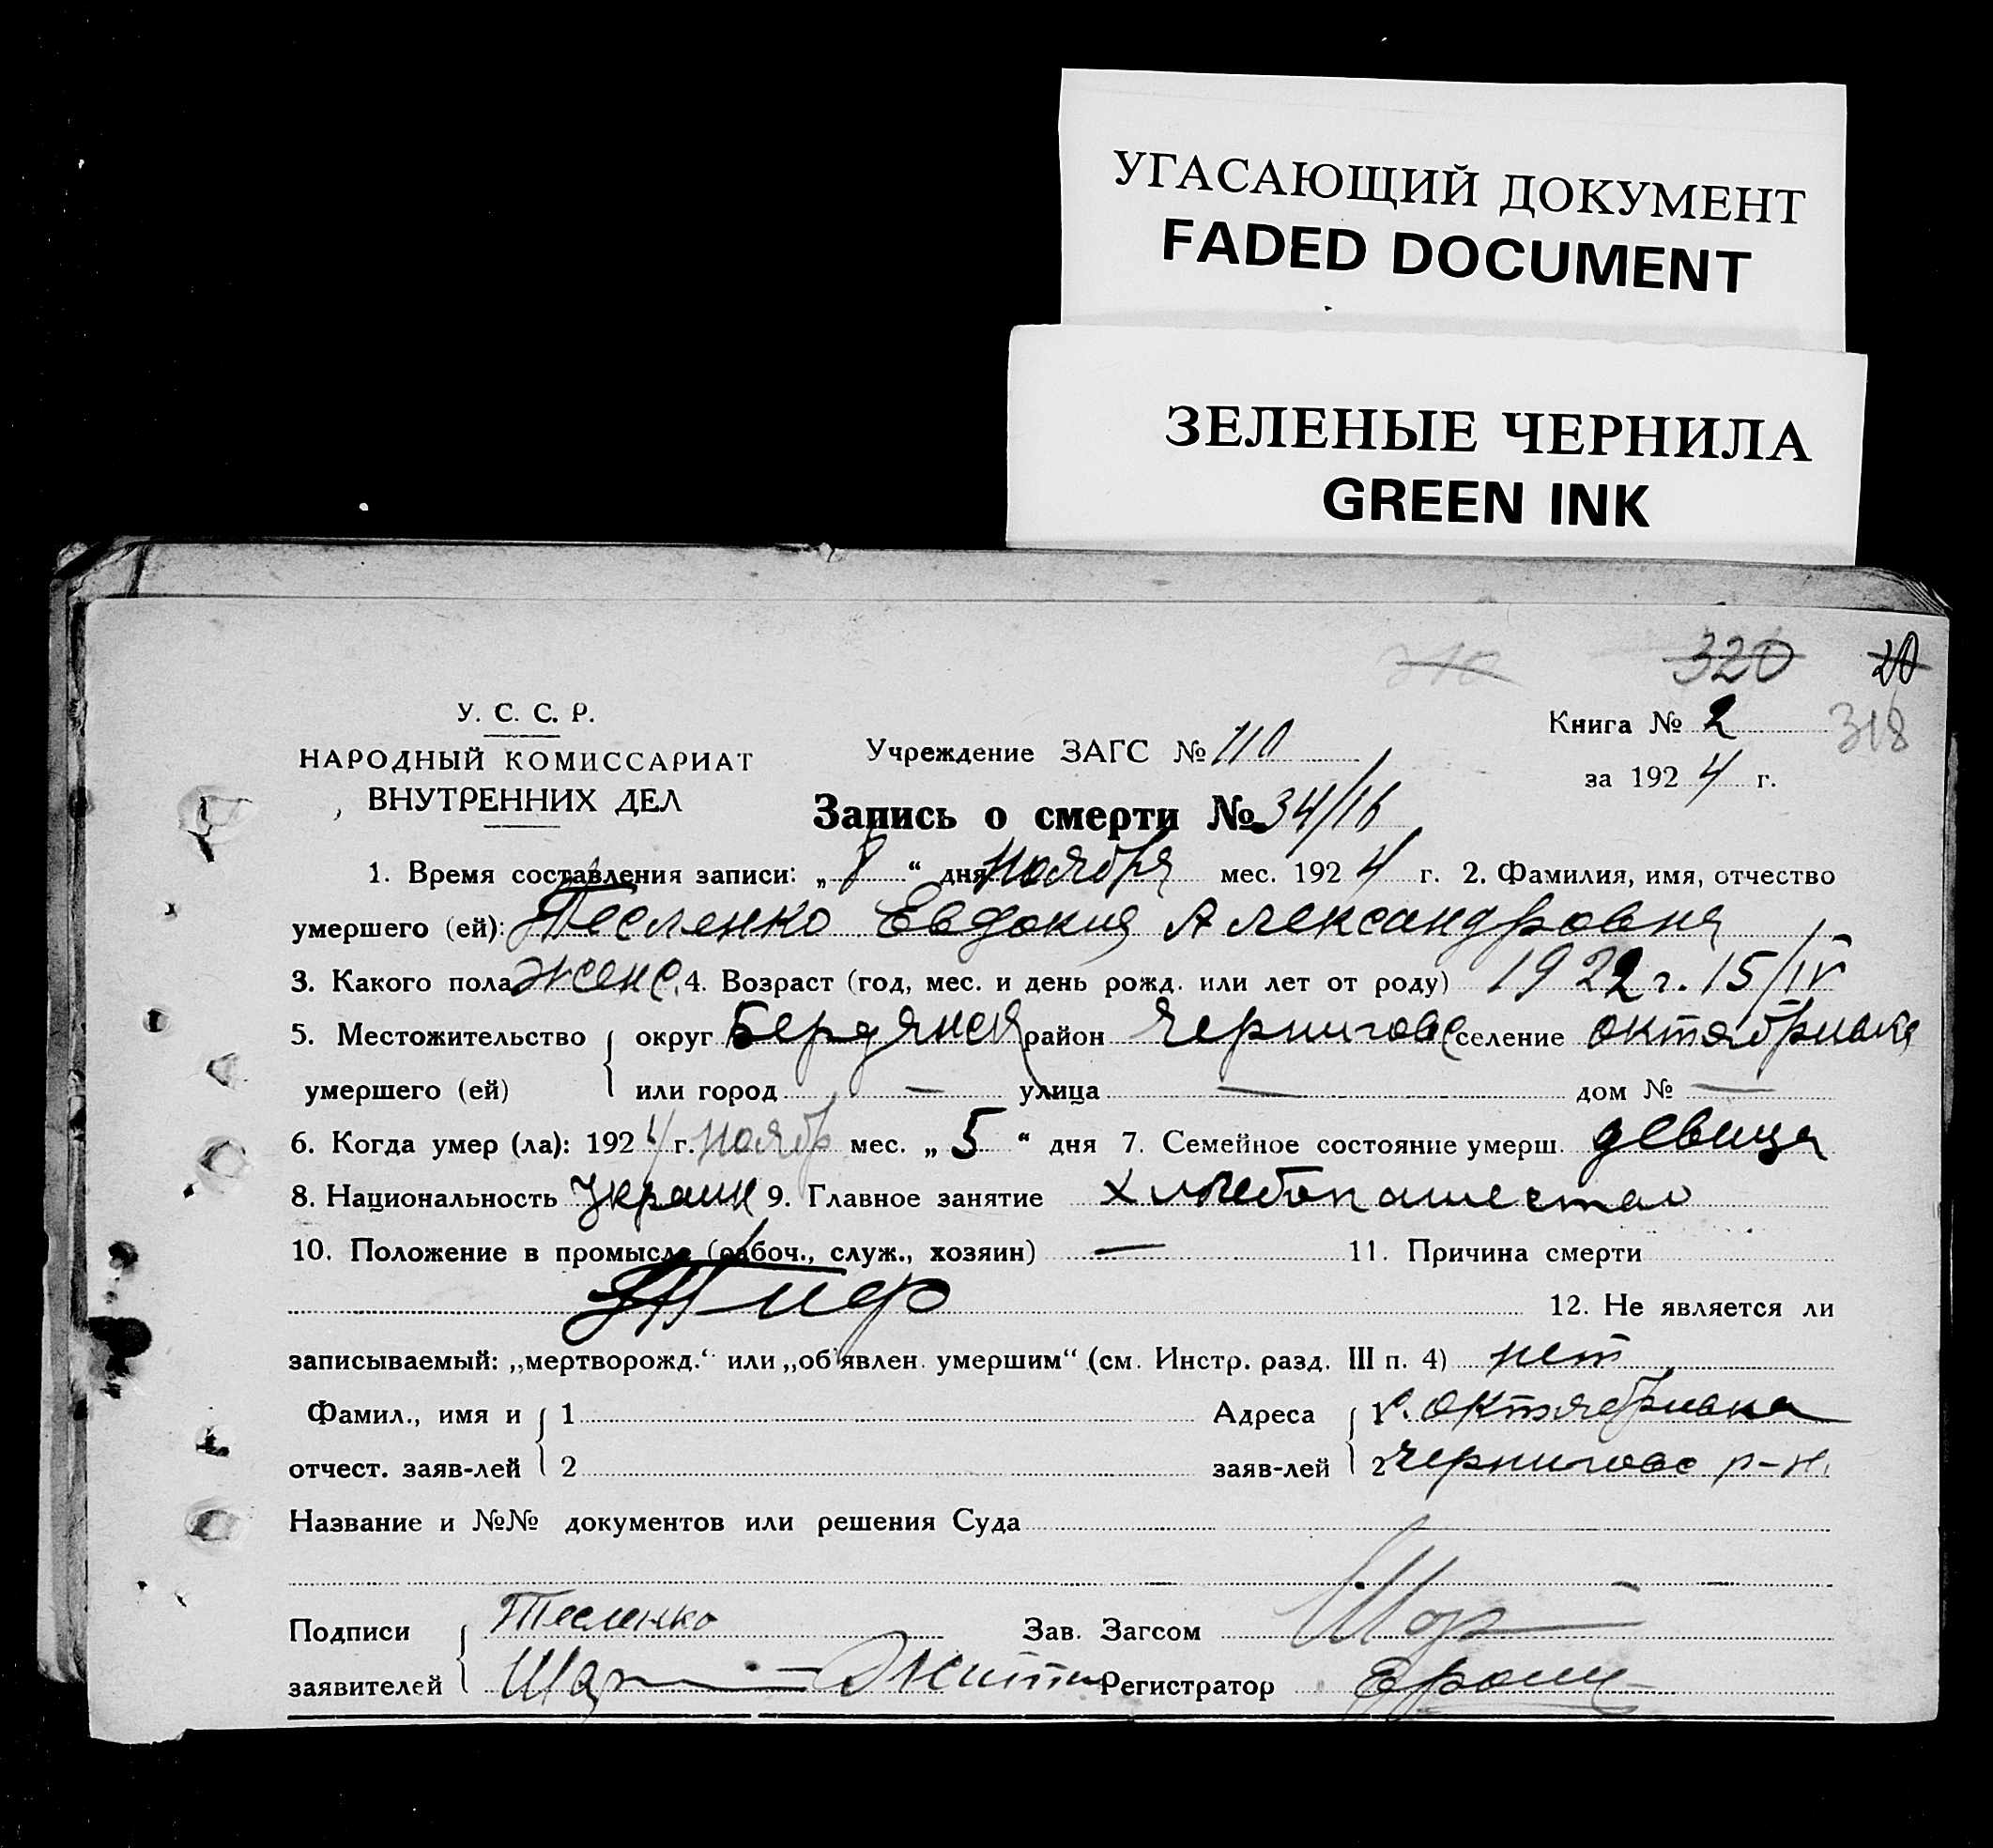 УГАСАЮЩИЙ ДОКУМЕНТ
FADED DOCUMENT
ЗЕЛЕНЫЕ ЧЕРНИЛА
GREEN INK
320 20
У. С. С. Р.
НАРОДНЫЙ КОМИССАРИАТ
ВНУТРЕННИХ ДЕЛ
Учреждение ЗАГС № 110
Книга № 2 318
за 1924 г.
Запись о смерти № 34/16
1. Время составления записи: „8“ дня ноября мес. 1924 г. 2. Фамилия, имя, отчество
умершего (ей): Тесленко Евдокия Александровна
3. Какого пола женс. 4. Возраст (год, мес. и день рожд. или лет от роду) 1922 г. 15/IV
5. Местожительство округ Бердянск район Черниговс селение октябриака
умершего (ей) или город — улица — дом № —
6. Когда умер (ла): 1924 г. ноябр мес. „5“ дня 7. Семейное состояние умерш. девица
8. Национальность Украин 9. Главное занятие
10. Положение в промысле (рабоч., служ., хозяин) — 11. Причина смерти
12. Не является ли
записываемый: „мертворожд.“ или „об'явлен умершим“ (см. Инстр. разд. III п. 4) нет
Фамил., имя и 1 Адреса 1 с. октябриака
отчест. заяв-лей 2 заяв-лей 2 Черниговс р-н.
Название и №№ документов или решения Суда
Подписи Тесленко Зав. Загсом
заявителей Регистратор